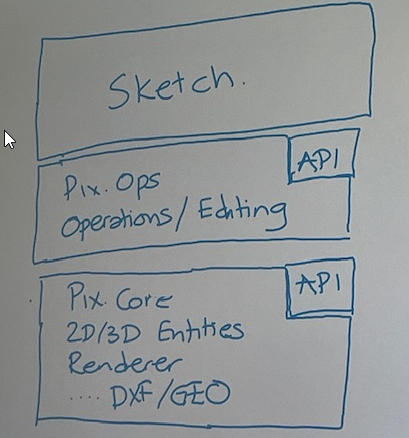 Sketch.
API
Pix. Ops
Operations/Editing
API
Pix. Core
2D/3D Entities
Renderer
.... DXF/GEO